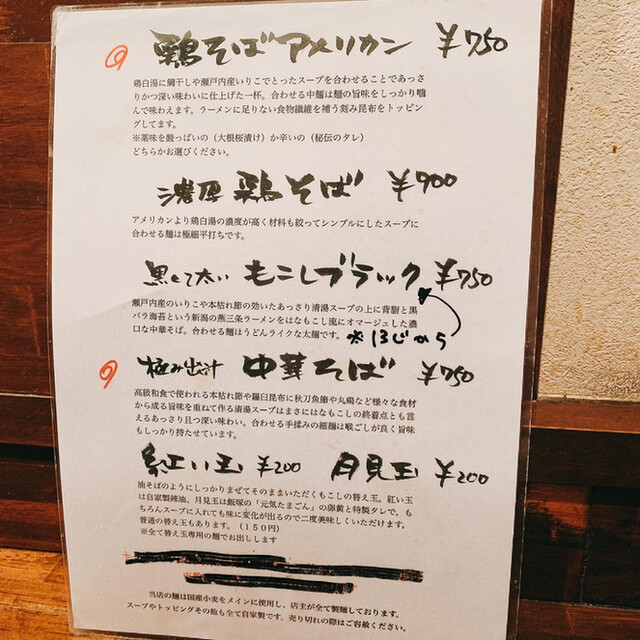 鶏そばアメリカン ¥750
鶏白湯に鯛干しや瀬戸内産いりこでとったスープを合わせることであっさ
りかつ深い味わいに仕上げた一杯。合わせる中麺は麺の旨味をしっかり噛
んで味わえます。ラーメンに足りない食物繊維を補う刻み昆布をトッピン
グしてます。
※薬味を酸っぱいの(大根桜漬け)か辛いの(秘伝のタレ)
どちらかお選びください。
濃厚鶏そば ¥900
アメリカンより鶏白湯の濃度が高く材料も絞ってシンプルにしたスープに
合わせる麺は極細平打ちです。
黒くて太い もこしブラック ¥750
瀬戸内産のいりこや本枯れ節の効いたあっさり清湯スープの上に背脂と黒
バラ海苔という新潟の燕三条ラーメンをはなもこし流にオマージュした濃
口な中華そば。合わせる麺はうどんライクな太麺です。
※13じから
極み出汁 中華そば ¥750
高級和食で使われる本枯れ節や羅臼昆布に秋刀魚節や丸鶏など様々な食材
から成る旨味を重ねて作る清湯スープはまさにはなもこしの終着点とも言
えるあっさり且つ深い味わい。合わせる手揉みの細麺は喉ごしが良く旨味
もしっかり持たせています。
紅い玉 ¥200 月見玉 ¥200
油そばのようにしっかりまぜてそのままいただくもこしの替え玉。紅い玉
は自家製辣油、月見玉は飯塚の「元気たまごん」の卵黄と特製タレで。も
ちろんスープに入れても味に変化が出るので二度美味しくいただけます。
普通の替え玉もあります。(150円)
※全て替え玉専用の麺でお出しします
当店の麺は国産小麦をメインに使用し、店主が全て製麺しております。
スープやトッピングその他も全て自家製です。売り切れの際はご容赦ください。